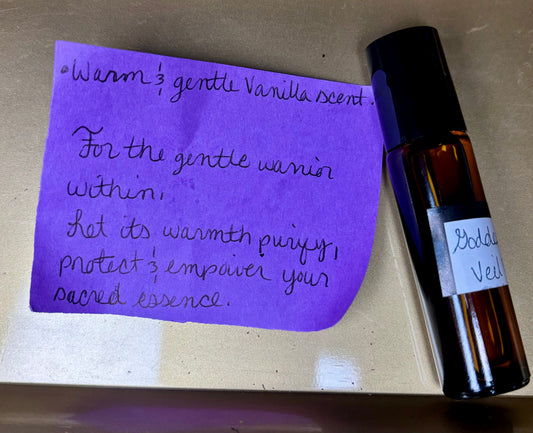 • Warm & gentle Vanilla scent.
For the gentle warrior
within,
Let its warmth purify,
protect & empower your
sacred essence.
Godde
Veil